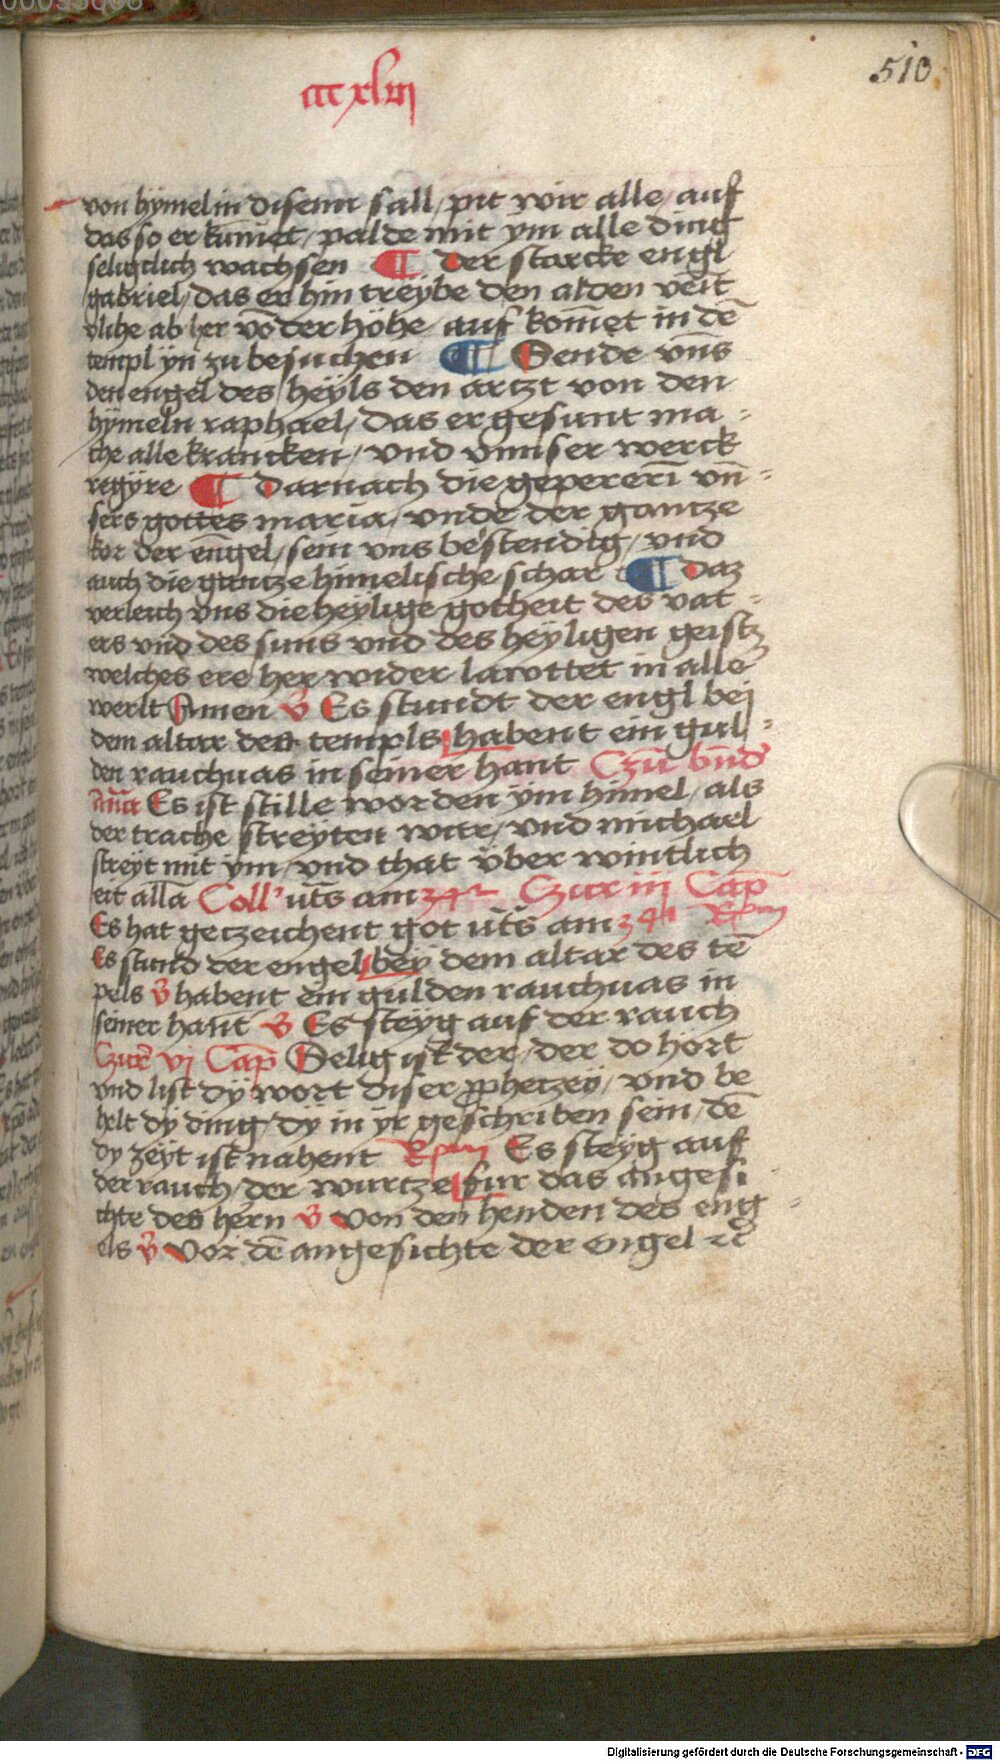 510
ccc xlııı
von hÿmel in disenn sall / pit wir alle / auf
das so er kum̄et / palde mit ym alle ding
seligclich wachsen ¶ der starcke engl
gabriel / das er hin treÿbe den alden veīt
vliche ab her vō der höhe / auf kom̄et in dē
templ ÿn zu besuchen ¶ Sende vn̄s
den engel des heÿls den artzt von den
hÿmeln raphael / das er gesunt ma-
che alle krancken / vnd vnnser werck
regÿre ¶ Darnach die gepererī vn̄-
sers gottes maria / vnde der gantze
kor der en̄gel / sein vns bestendig / vnd
auch die gantze himelische schar ¶ Daz
verleich vns die heÿlige gotheit des vat-
ers vnd des suns vnd des heÿligen geistz
welches ere her wider lawttet in alle
werlt Amen V̄ Es stundt der engl bei
dem altar des templs habent ein gul-
den rauchuas in seiner hant Czū bn̄d'
An̄a Es ist stille worden ÿm himel / als
der trache streÿten was / vnd michael
streÿt mit ÿm / vnd that über wintlich
eit allā Coll' ut̄s am 34 Czur iii Cap̄
Es hat geczeichent got ut̄s am 34 Rpm
Es stund der engel beÿ dem altar des tē
pels V̄ habent ein gulden rauchuas in
seiner han̄t V̄ Es steÿg auf der rauch
Czur̄ vj Cap̄ Selig ist der / der do hört
vnd list dÿ wort diser ꝓphetzeÿ / vnd be
helt dÿ ding / dÿ in ÿr geschriben sein / dē
dy zeÿt ist nahent Rpm Es steÿg auf
der rauch / der wurtze fur das angesi
chte des hern V̄ Von den henden des eng-
els V̄ Vor dē angesichte der engel ꝛc̄
00035608
Digitalisierung gefördert durch die Deutsche Forschungsgemeinschaft - DFG